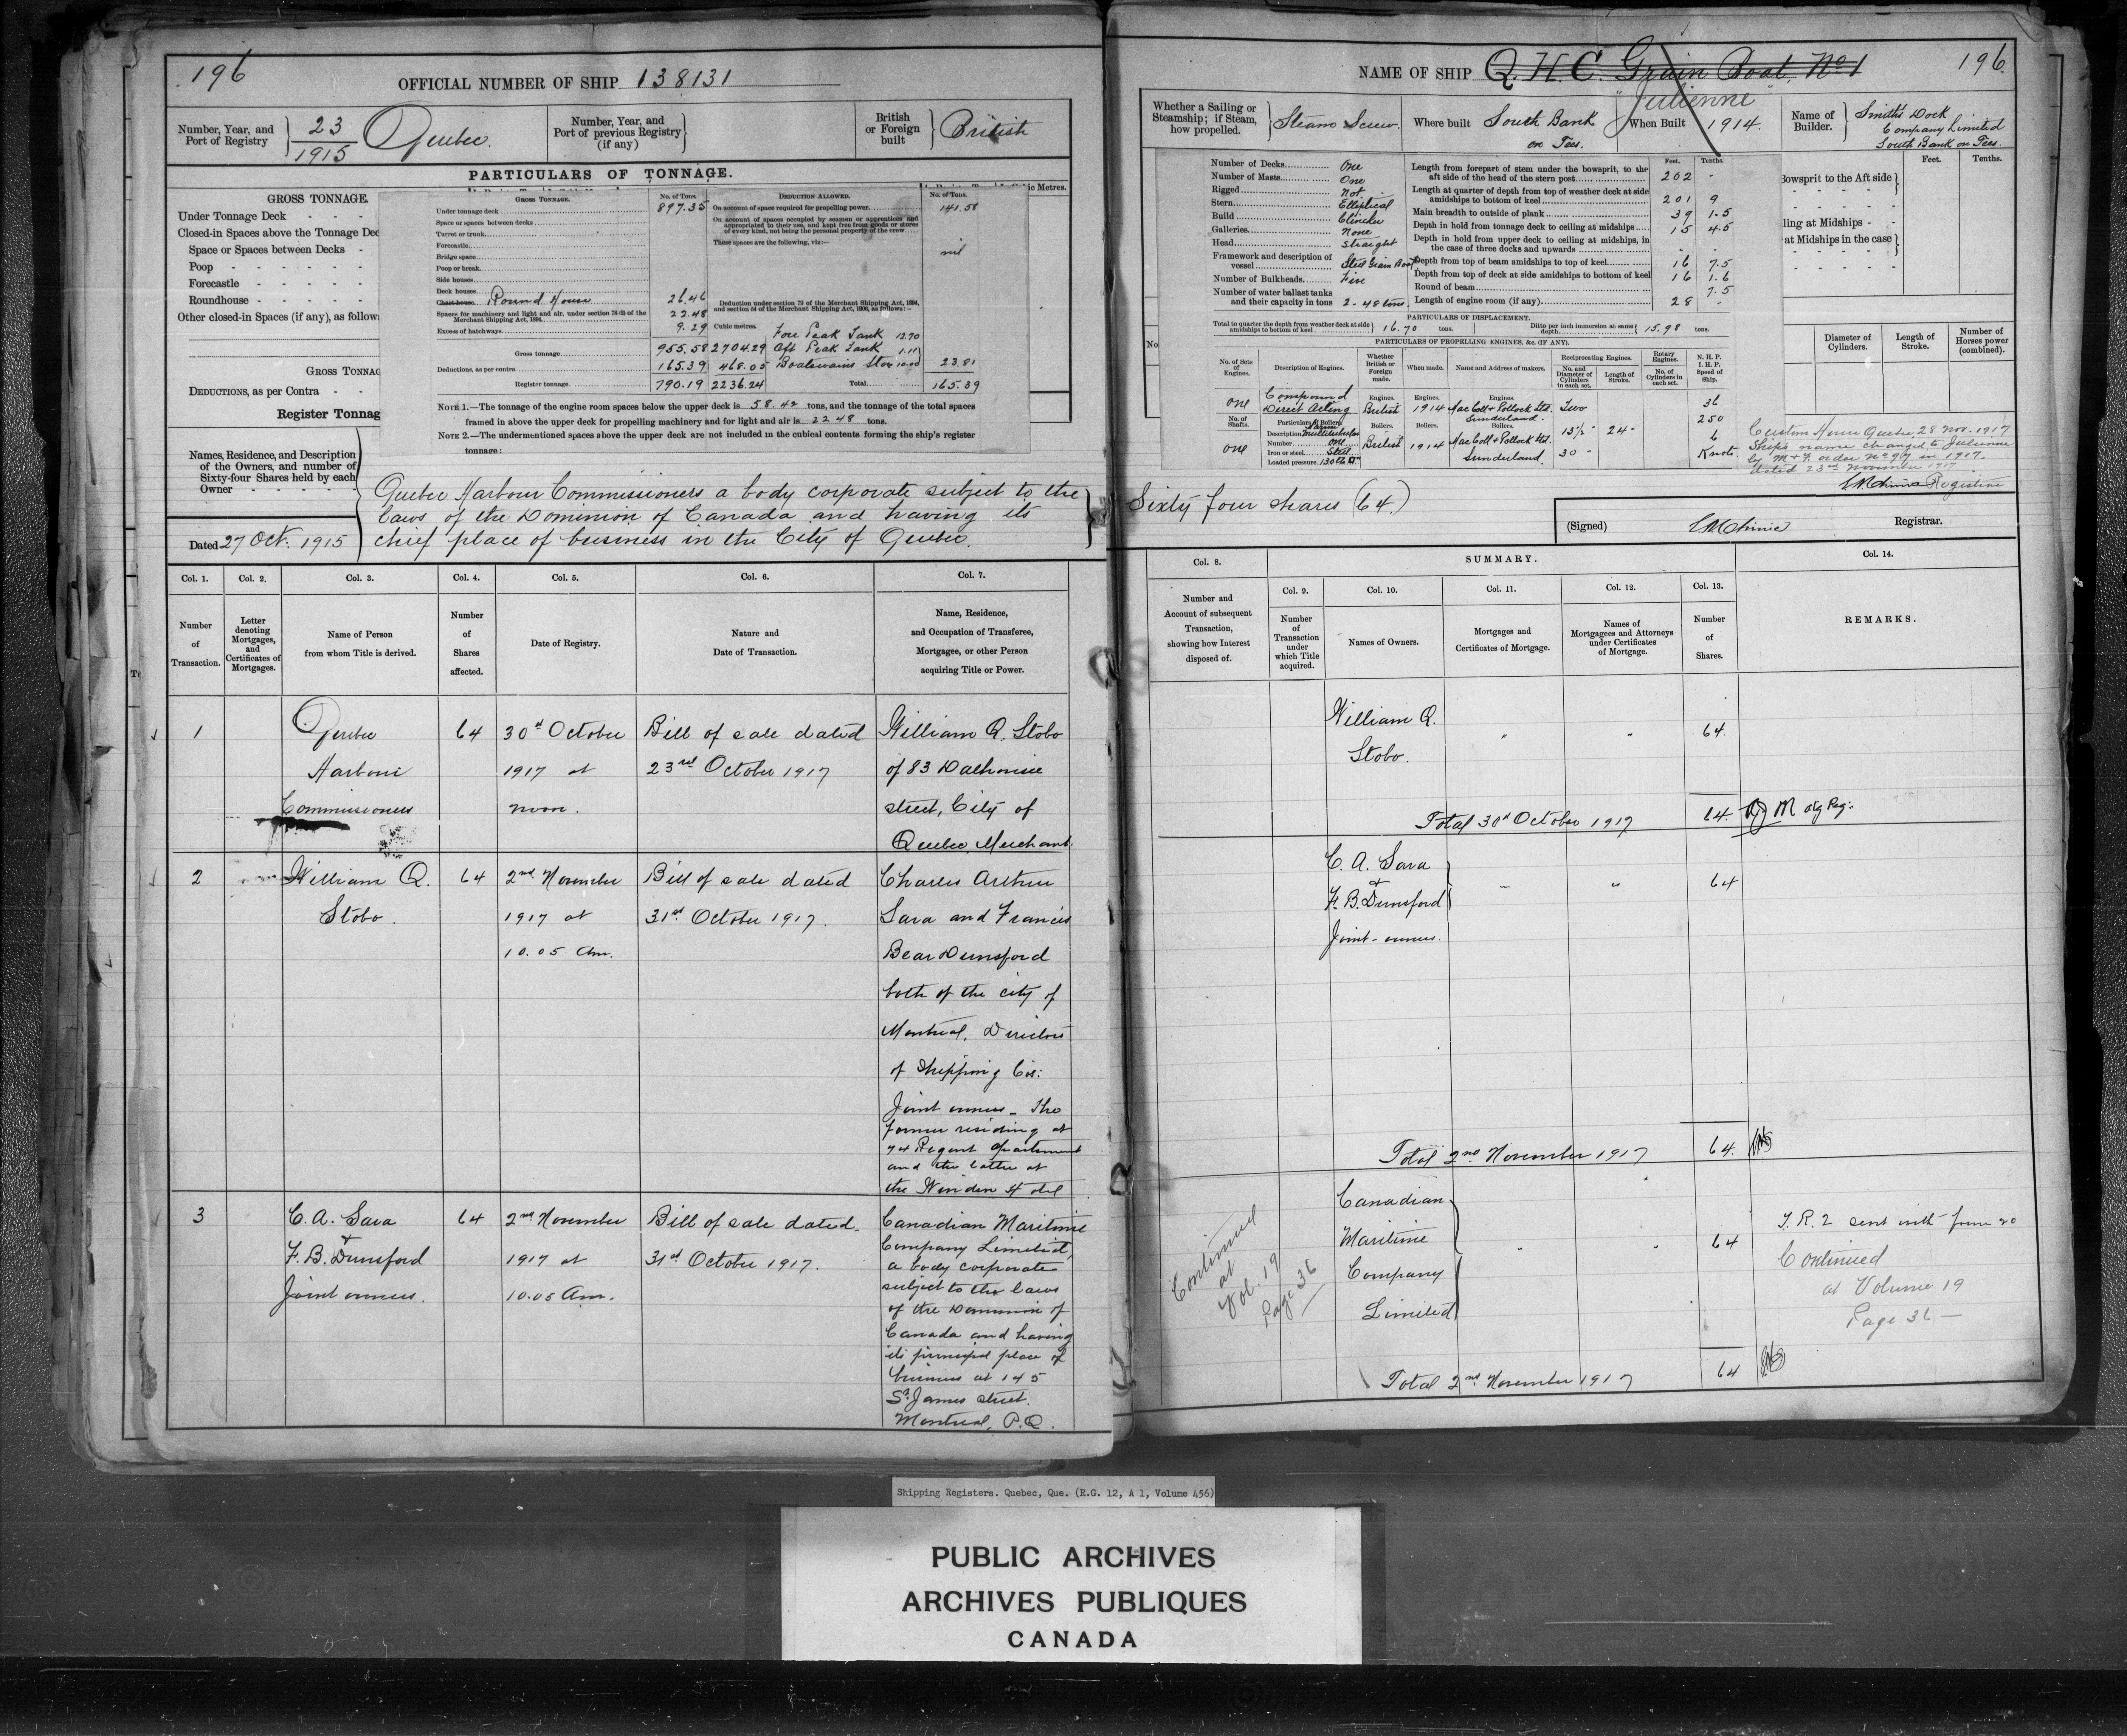 196
OFFICIAL NUMBER OF SHIP 138131
Number, Year, and Port of Registry 23/1915 Quebec.
Number, Year, and Port of previous Registry (if any)
British or Foreign built British
PARTICULARS OF TONNAGE.
GROSS TONNAGE.
Under Tonnage Deck
Closed-in Spaces above the Tonnage Dec
Space or Spaces between Decks
Poop
Forecastle
Roundhouse
Other closed-in Spaces (if any), as follow
GROSS TONNAG
DEDUCTIONS, as per Contra
Register Tonnag
ic Metres.
GROSS TONNAGE. No. of Tons.
Under tonnage deck 897.35
Space or spaces between decks
Turret or trunk
Forecastle
Bridge space
Poop or break
Side houses
Deck houses
Chart house Round House 26.46
Spaces for machinery and light and air, under section 78 (2) of the Merchant Shipping Act, 1894 22.48
Excess of hatchways 9.29 Cubic metres.
Gross tonnage 955.58 2704.29
Deductions, as per contra 165.39 468.05
Register tonnage 790.19 2236.24
DEDUCTION ALLOWED. No. of Tons.
On account of space required for propelling power 141.58
On account of spaces occupied by seamen or apprentices and appropriated to their use, and kept free from goods or stores of every kind, not being the personal property of the crew
These spaces are the following, viz:—
nil
Deduction under section 79 of the Merchant Shipping Act, 1894, and section 54 of the Merchant Shipping Act, 1906, as follows:—
Fore Peak Tank 12.70
Aft Peak Tank 1.11
Boatswains Store 10.00 23.81
Total 165.39
NOTE 1.—The tonnage of the engine room spaces below the upper deck is 58.42 tons, and the tonnage of the total spaces
framed in above the upper deck for propelling machinery and for light and air is 22.48 tons.
NOTE 2.—The undermentioned spaces above the upper deck are not included in the cubical contents forming the ship's register
tonnage:
Names, Residence, and Description of the Owners, and number of Sixty-four Shares held by each Owner
Quebec Harbour Commissioners a body corporate subject to the
laws of the Dominion of Canada and having its
chief place of business in the City of Quebec.
Dated 27 Oct. 1915
Col. 1. Col. 2. Col. 3. Col. 4. Col. 5. Col. 6. Col. 7.
Number of Transaction.
Letter denoting Mortgages, and Certificates of Mortgages.
Name of Person from whom Title is derived.
Number of Shares affected.
Date of Registry.
Nature and Date of Transaction.
Name, Residence, and Occupation of Transferee, Mortgagee, or other Person acquiring Title or Power.
1 Quebec 64 30th October Bill of sale dated William Q. Stobo
Harbour 1917 at 23rd October 1917 of 83 Dalhousie
Commissioners noon. street, City of
Quebec, Merchant.
2 William Q. 64 2nd November Bill of sale dated Charles Arthur
Stobo. 1917 at 31st October 1917. Sara and Francis
10.05 Am. Bear Dunsford
both of the city of
Montreal, Directors
of Shipping Cos:
Joint owners - The
former residing at
74 Regent Apartment
and the latter at
the Windsor Hotel
3 C. A. Sara 64 2nd November Bill of sale dated Canadian Maritime
+
F. B. Dunsford 1917 at 31st October 1917. Company Limited,
Joint owners. 10.05 Am. a body corporate
subject to the laws
of the Dominion of
Canada and having
its principal place of
business at 145
St. James Street.
Montreal, P.Q.
NAME OF SHIP Q.H.C. Grain Boat. No 1 196.
"Julienne"
Whether a Sailing or Steamship; if Steam, how propelled. Steam Screw.
Where built South Bank on Tees.
When Built 1914.
Name of Builder. Smith's Dock
Company Limited
South Bank on Tees.
Feet. Tenths.
Bowsprit to the Aft side
ling at Midships
at Midships in the case
Diameter of Cylinders.
Length of Stroke.
Number of Horses power (combined).
Number of Decks One
Number of Masts One
Rigged Not
Stern Elliptical
Build Clincher
Galleries None
Head Straight
Framework and description of vessel Steel Grain Boat
Number of Bulkheads Five
Number of water ballast tanks and their capacity in tons 2 - 48 tons.
Feet. Tenths.
Length from forepart of stem under the bowsprit, to the aft side of the head of the stern post 202 -
Length at quarter of depth from top of weather deck at side amidships to bottom of keel 201 9
Main breadth to outside of plank 39 1.5
Depth in hold from tonnage deck to ceiling at midships 15 4.5
Depth in hold from upper deck to ceiling at midships, in the case of three decks and upwards - -
Depth from top of beam amidships to top of keel 16 7.5
Depth from top of deck at side amidships to bottom of keel 16 1.6
Round of beam 7.5
Length of engine room (if any) 28 -
PARTICULARS OF DISPLACEMENT.
Total to quarter the depth from weather deck at side amidships to bottom of keel 16.70 tons. Ditto per inch immersion at same depth 15.98 tons.
PARTICULARS OF PROPELLING ENGINES, &c. (IF ANY).
No. of Sets of Engines.
Description of Engines.
Whether British or Foreign made.
When made.
Name and Address of makers.
Reciprocating Engines.
No. and Diameter of Cylinders in each set.
Length of Stroke.
Rotary Engines.
No. of Cylinders in each set.
N. H. P. I. H. P. Speed of Ship.
one Compound Direct Acting Engines. British Engines. 1914 MacColl & Pollock Ltd. Sunderland. Two 36
No. of Shafts. Particulars of Boilers. 250
one Description Multitubular Boilers. British Boilers. 1914 MacColl & Pollock Ltd. Sunderland. 15½" 24" 6
Number One
Iron or steel Steel
Loaded pressure 130 lbs 30" Knots.
Custom House Quebec, 28 Nov. 1917
Ship's name changed to Julienne
by M & F. order No 97 in 1917.
dated 23rd November 1917
Registrar
Sixty four shares (64.)
(Signed) Registrar.
Col. 8. SUMMARY. Col. 14.
Col. 9. Col. 10. Col. 11. Col. 12. Col. 13.
Number and Account of subsequent Transaction, showing how Interest disposed of.
Number of Transaction under which Title acquired.
Names of Owners.
Mortgages and Certificates of Mortgage.
Names of Mortgagees and Attorneys under Certificates of Mortgage.
Number of Shares.
REMARKS.
William Q. 64.
Stobo.
Total 30th October 1917 64.
C. A. Sara
+ 64
F. B. Dunsford
Joint-owners.
Total 2nd November 1917 64.
Canadian
Maritime 64 T.R. 2 sent with form 20
Company Continued
Limited at Volume 19
Page 36 —
Continued
at
Vol. 19
Page 36
Total 2nd November 1917 64
Shipping Registers. Quebec, Que. (R.G. 12, A 1, Volume 456)
PUBLIC ARCHIVES
ARCHIVES PUBLIQUES
CANADA